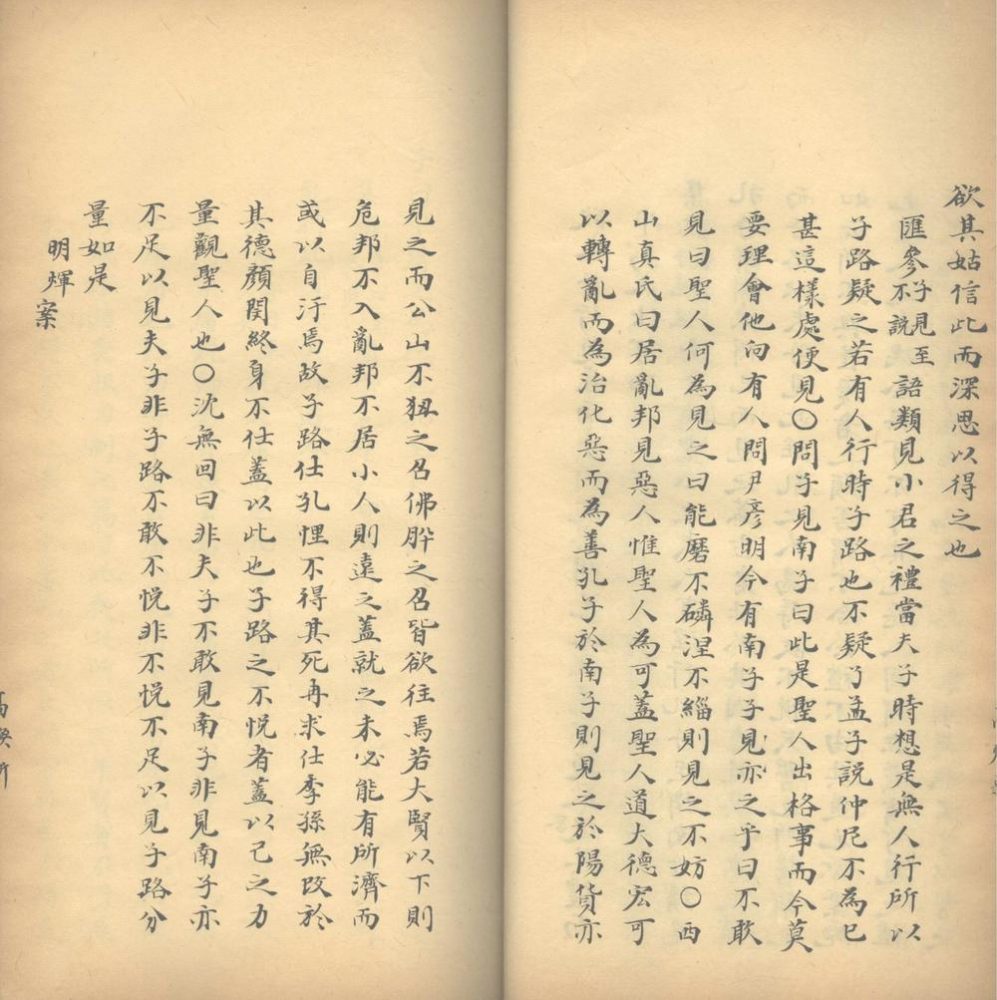 欲其姑信此而深思以得之也
匯參子見至不說語類見小君之禮當夫子時想是無人行所以
子路疑之若有人行時子路也不疑了孟子說仲尼不為已
甚這樣處便見〇問子見南子曰此是聖人出格事而今莫
要理會他向有人問尹彥明今有南子子見亦之乎曰不敢
見曰聖人何為見之曰能磨不磷涅不緇則見之不妨〇西
山真氏曰居亂邦見惡人惟聖人為可蓋聖人道大德宏可
以轉亂而為治化惡而為善孔子於南子則見之於陽貨亦
見之而公山不狃之召佛肸之召皆欲往焉若大賢以下則
危邦不入亂邦不居小人則遠之蓋就之未必能有所濟而
或以自汙焉故子路仕孔悝不得其死冉求仕季孫無改於
其德顏閔終身不仕蓋以此也子路之不悅者蓋以己之力
量觀聖人也〇沈無回曰非夫子不敢見南子非見南子亦
不足以見夫子非子路不敢不悅非不悅不足以見子路分
量如是
明煇案